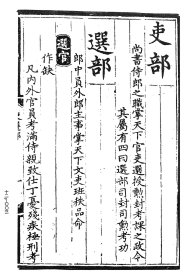 吏部
尚書侍郎之職掌天下官吏選授勳封考課之政令
其屬有四曰選部司封司勳考功
選部
郎中員外郎主事掌天下文吏班秩品命
選官
作缺
凡內外官員考滿侍親致仕丁憂殘疾極刑考